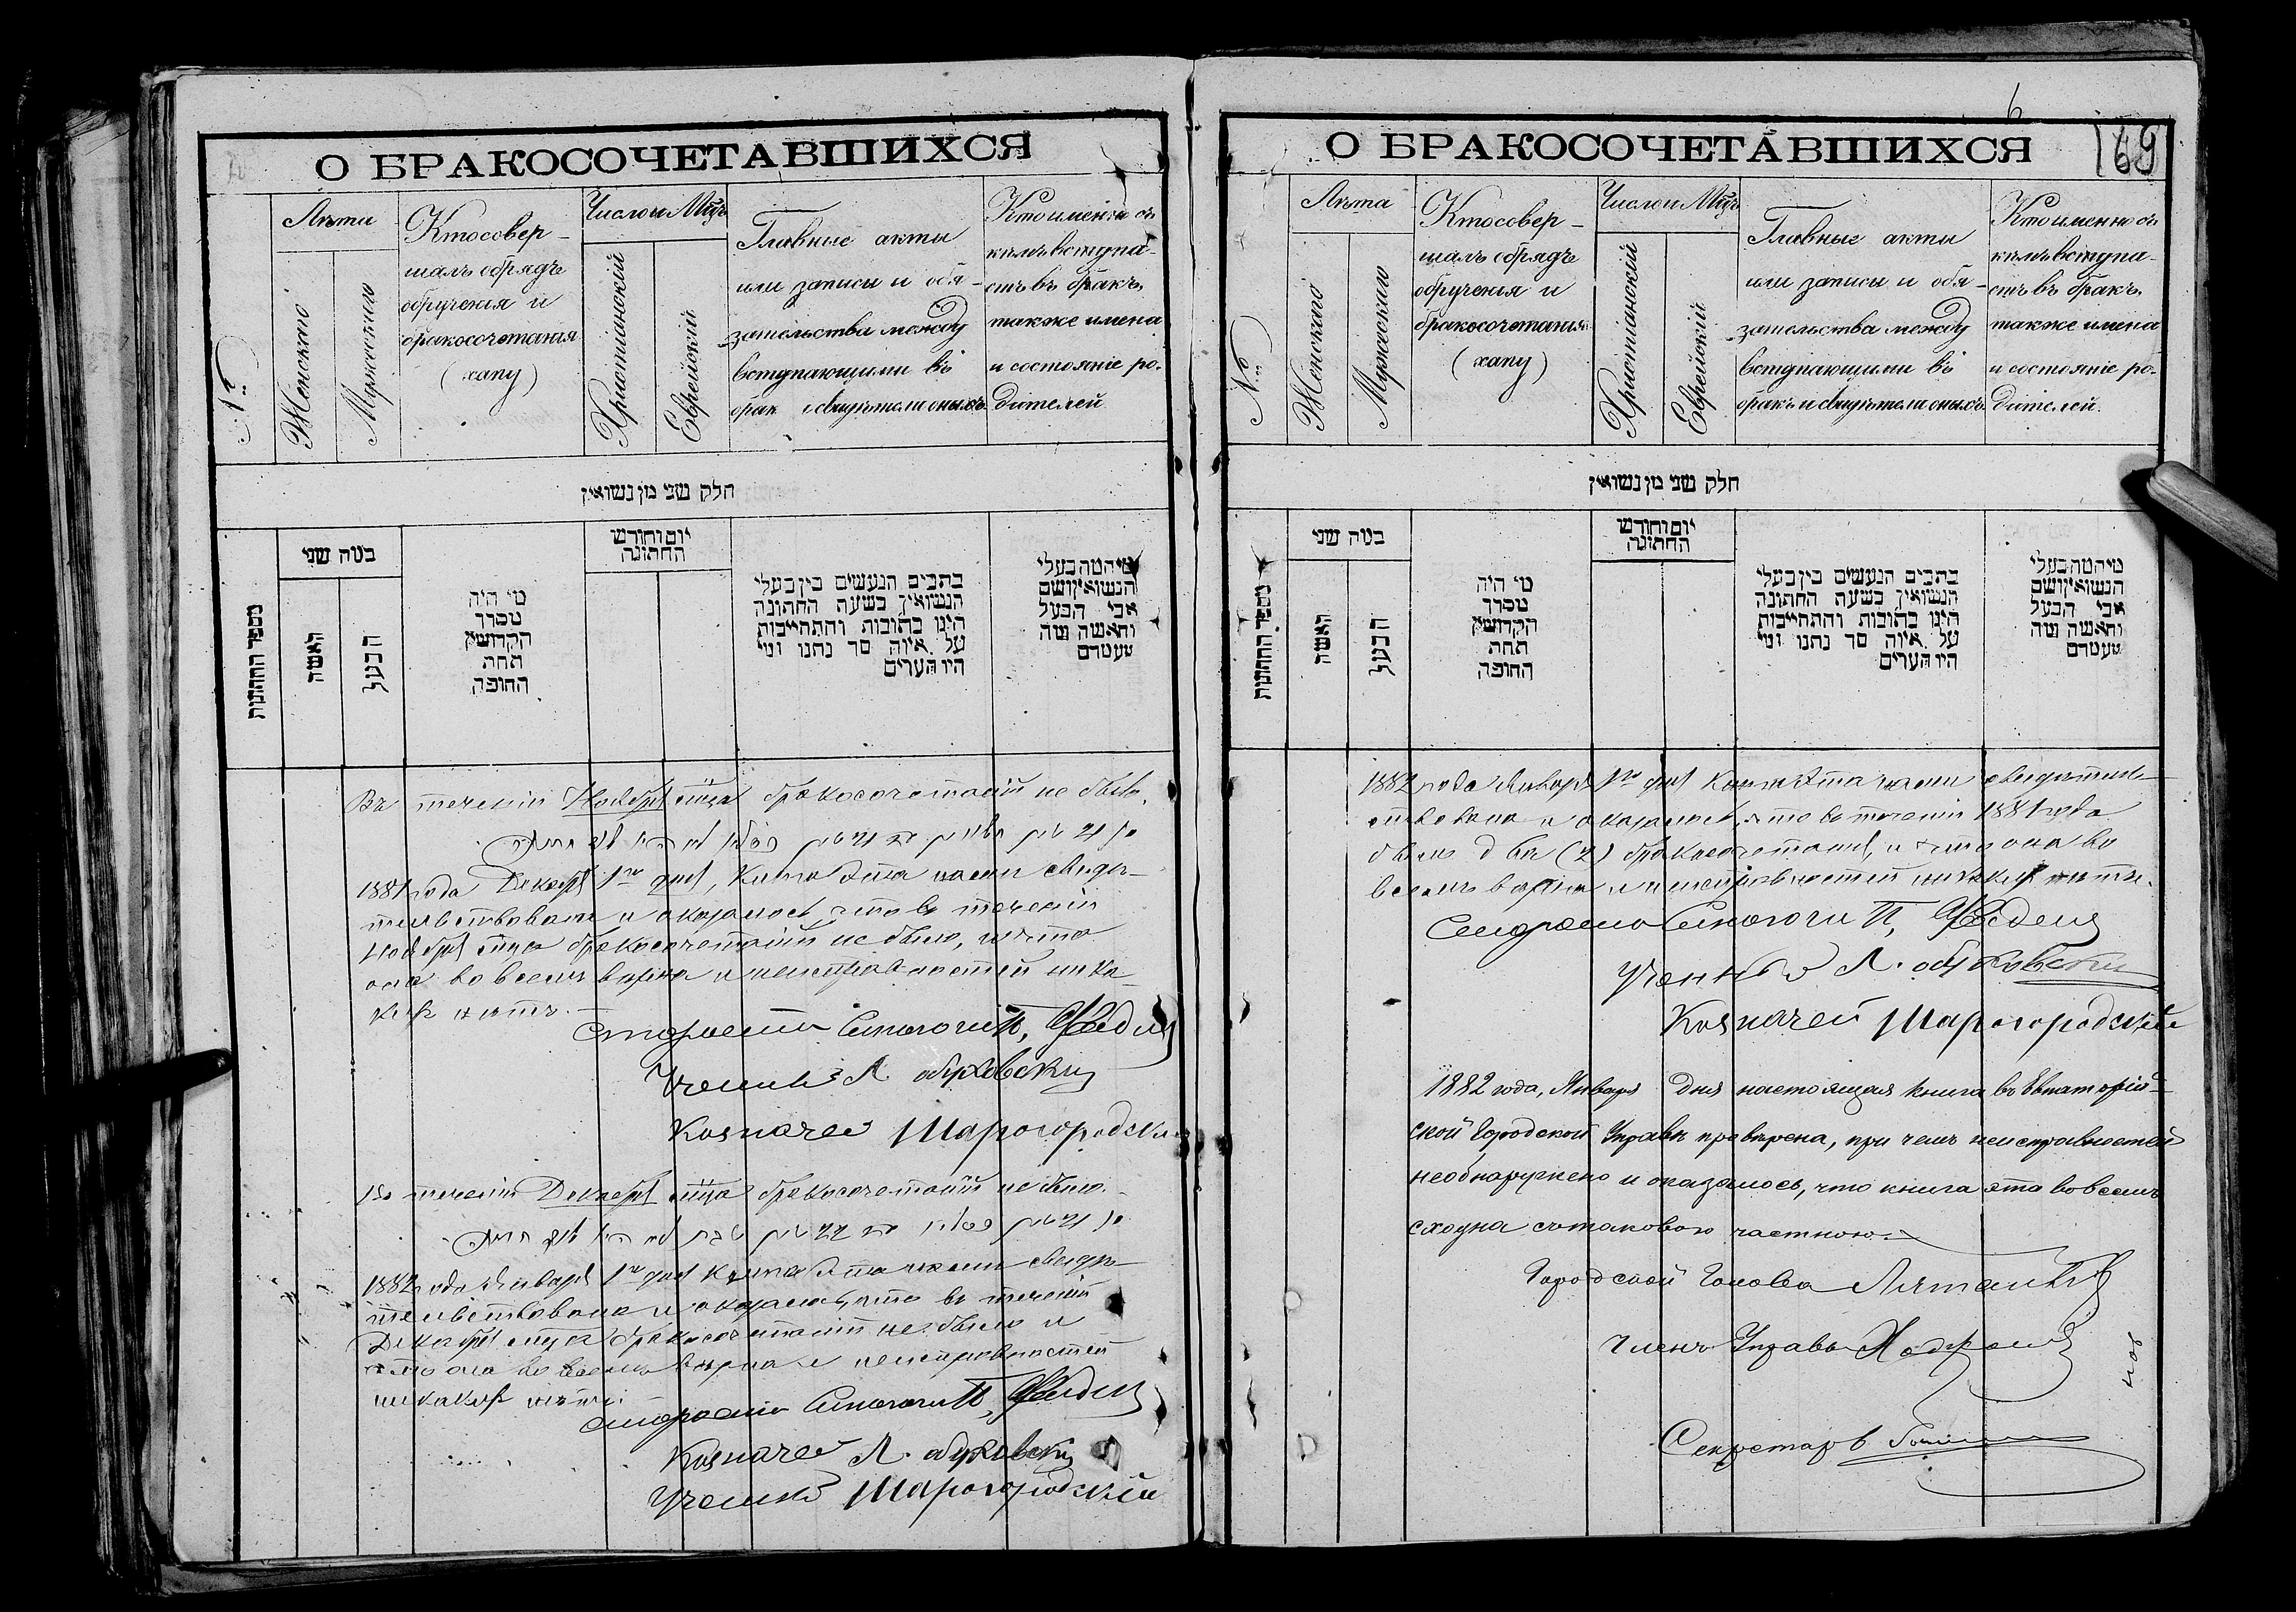 О БРАКОСОЧЕТАВШИХСЯ
№
Лѣта
Женскаго
Мужескаго
Кто совер-
шалъ обрядъ
обрученія и
бракосочетанія
(хапу)
Число и Мцъ
Христіанскій
Еврейскій
Главные акты
или записи и обя-
зательства между
вступающими въ
бракъ и свидѣтели оныхъ
Кто именно съ
кѣмъ вступа-
етъ въ бракъ,
также имена
и состояніе ро-
дителей
חלק שני מן נשואין
מספר החתונות
כמה שני
האשה
הבעל
מי היה
מסדר
הקדושין
תחת
החופה
יום וחודש
החתונה
כתבים הנעשים בין בעלי
הנשואין בשעת החתונה
היינו כתובות והתחייבות
על איזה סך נתנו ומי
היו העדים
מי המה בעלי
הנשואין ושם
אבי הבעל
והאשה ומה
מעמדם
Въ теченіи Ноября мѣца бракосочетаній не было.
1881 года Декабря 1го дня, Книга эта нами свидѣ-
тельствована и оказалось, что въ теченіи
Ноября мѣца бракосочетаній не было, и что
она во всемъ вѣрна и неисправностей ника-
кихъ нѣтъ.
Староста Синагоги П,
Ученый Л.
Казначей Шарогородскій
Въ теченіи Декабря мѣца бракосочетаній не было.
1882 года Января 1го дня Книга эта нами свидѣ-
тельствована и оказалось, что въ теченіи
Декабря мѣца бракосочетаній не было и
что она во всемъ вѣрна и неисправностей
никакихъ нѣтъ.
Староста Синагоги П,
Казначей Л.
Ученый Шарогородскій
6
169
О БРАКОСОЧЕТАВШИХСЯ
№
Лѣта
Женскаго
Мужескаго
Кто совер-
шалъ обрядъ
обрученія и
бракосочетанія
(хапу)
Число и Мцъ
Христіанскій
Еврейскій
Главные акты
или записи и обя-
зательства между
вступающими въ
бракъ и свидѣтели оныхъ
Кто именно съ
кѣмъ вступа-
етъ въ бракъ,
также имена
и состояніе ро-
дителей.
חלק שני מן נשואין
מספר החתונות
כמה שני
האשה
הבעל
מי היה
מסדר
הקדושין
תחת
החופה
יום וחודש
החתונה
כתבים הנעשים בין בעלי
הנשואין בשעת החתונה
היינו כתובות והתחייבות
על איזה סך נתנו ומי
היו העדים
מי המה בעלי
הנשואין ושם
אבי הבעל
והאשה ומה
מעמדם
1882 года Января 1го дня Книга эта нами свидѣтель-
ствована и оказалось, что въ теченіи 1881 года
было двѣ (2) бракосочетанія, и что она во
всемъ вѣрна и неисправностей никакихъ нѣтъ.
Староста Синагоги П,
Ученый Л.
Казначей Шарогородскій
1882 года, Января дня настоящая книга въ Евпаторій-
ской Городской Управѣ провѣрена, при чемъ неисправностей
необнаружено и оказалось, что книга эта во всемъ
сходна съ таковою частною.
Городской Голова
Членъ Управы
Секретарь